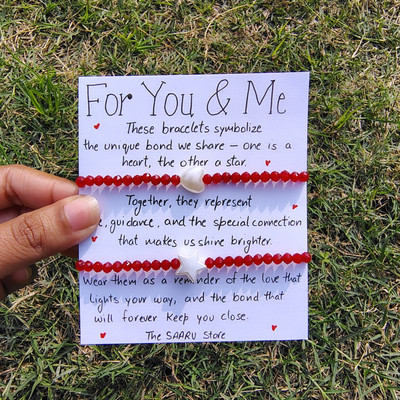 For You & Me
These bracelets symbolize
the unique bond we share – one is a
heart, the other a star.
Together, they represent
guidance, and the special connection
that makes us shine brighter.
Wear them as a reminder of the love that
lights your way, and the bond that
will forever keep you close.
The SAARU Store